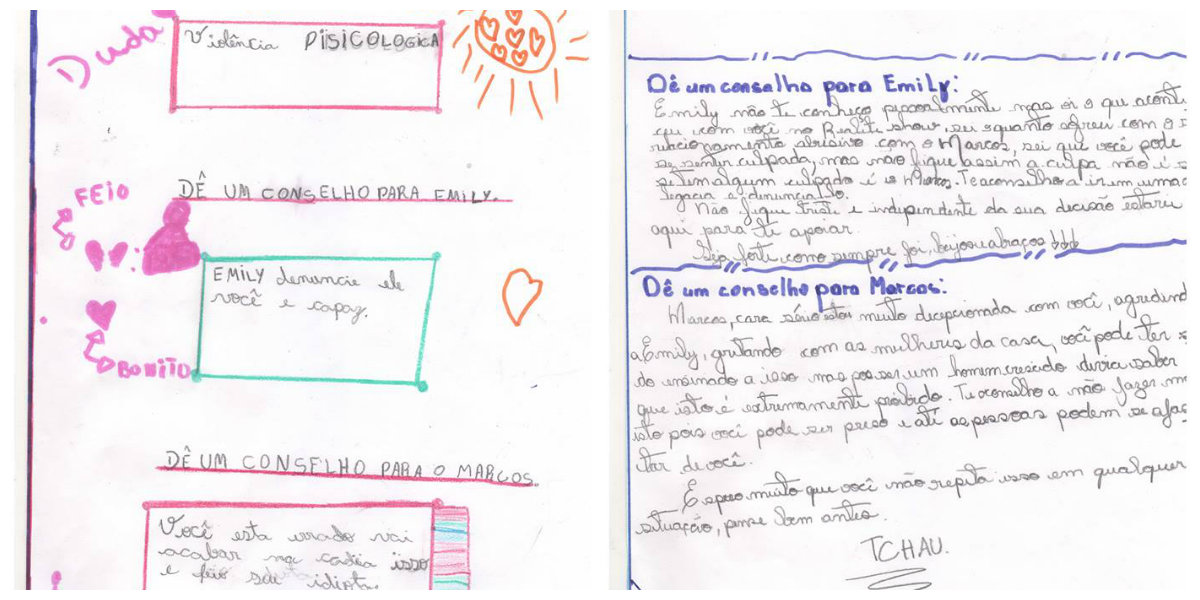 Duda
Violência PiSiCOLOGiCA
DÊ UM CONSELHO PARA EMILY.
FEIO
EMILY denuncie ele
você e capaz.
BONITO
DÊ UM CONSELHO PARA O MARCOS.
Você esta errado vai
acabar na cadêia isso
e feio seu idiota.
Dê um conselho para Emily:
Emily não te conheço pessoalmente mas vi o que aconte
ceu com você no Reality show, sei o quanto sofreu com o
relacionamento abusivo com o Marcos, sei que você pode
se sentir culpada, mas não fique assim a culpa não é
se tem algum culpado é o Marcos. Te aconselho a ir em uma
legacia e denunciá-lo.
Não fique triste e independente da sua decisão estarei
aqui para te apoiar.
Seja forte como sempre foi, beijos e abraços!!!
Dê um conselho para Marcos:
Marcos, cara sério estou muito decepcionada com você, agredind
a Emily, gritando com as mulheres da casa, você pode ter
do ensinado a isso mas por ser um homem crescido devia saber
que isto é extremamente proibido. Te aconselho a não fazer
isto pois você pode ser preso e até as pessoas podem se afas
tar de você.
E espero muito que você não repita isso em qualquer
situação, pense bem antes.
TCHAU.